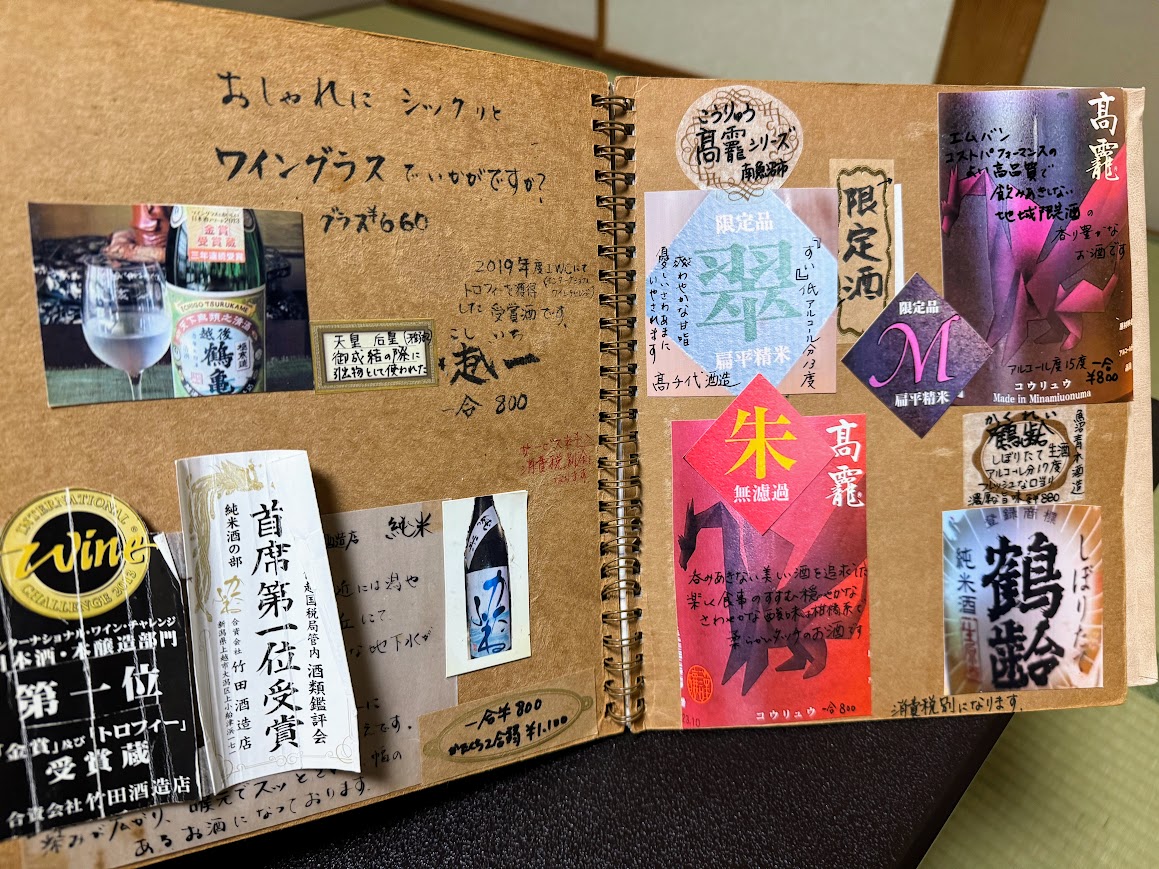 おしゃれに シックリと
ワイングラスでいかがですか?
グラス¥660
ワイングラスでおいしい
日本酒アワード2013
金賞
受賞蔵
三年連続受賞
ECHIGO TSURUKAME
越後
鶴亀
2019年度IWCにて
トロフィーを獲得
した 受賞酒です。
天皇 后皇
御成婚の際に
引出物として使われた
こし いち
越一
一合 800
消費税別
INTERNATIONAL
wine
CHALLENGE 2013
インターナショナル・ワイン・チャレンジ
日本酒・本醸造部門
第一位
「金賞」及び「トロフィー」
受賞蔵
合資会社竹田酒造店
首席第一位受賞
純米酒の部
国税局管内 酒類鑑評会
合資会社 竹田酒造店
新潟県上越市大潟区上小船津浜一七一
造店 純米
近には潟や
丘にて
な地下水が
に
です。
幅の
深みが広がり、喉元でスッと
あるお酒になっております。
一合¥800
かたくち2合弱 ¥1.100
こうりゅう
髙龗シリーズ
南魚沼市
限定品
翠
扁平精米
『すい』低アルコール分13度
爽わやかな甘味
優しいさわあまに
いやされます
高千代酒造
限定酒
髙龗
エムバン
コストパフォーマンスの
よい高品質で
飲みあきしない
地域限定酒の
香り豊かな
お酒です
アルコール度15度 一合
¥800
コウリュウ
Made in Minamiuonuma
限定品
M
扁平精米
朱
無濾過
髙龗
呑みあきない美しい酒を追求した
楽しく食事のすすむ穏やかな
さわやかな酸味は柑橘系で
柔らかいタッチのお酒です
コウリュウ 一合 800
かくれい
鶴齢
しぼりたて 生酒
アルコール分17度
フレッシュな口当り
濃厚な旨味 ¥880
魚沼青木酒造
登録商標
しぼりたて
鶴齢
純米酒
消費税別になります。